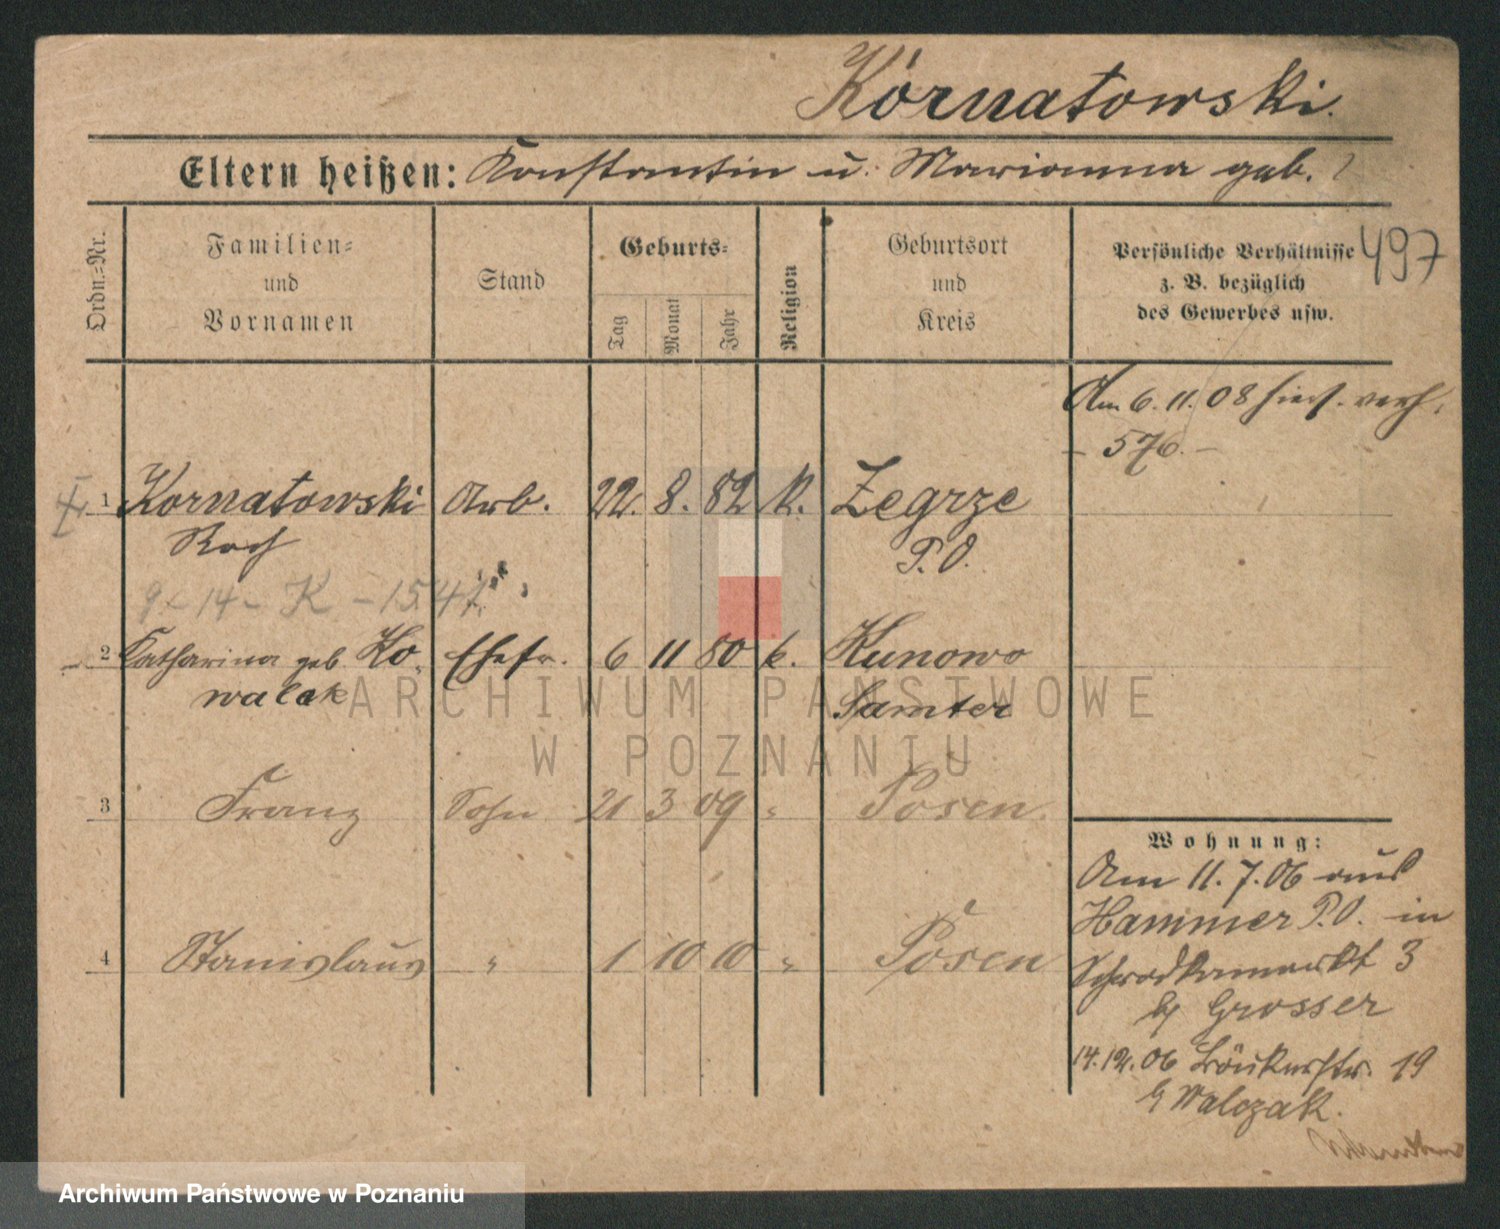 Kornatowski.
Eltern heißen: Konstantin u. Marianna geb. ?
Ordn.=Nr.
Familien=
und
Vornamen
Stand
Geburts=
Tag
Monat
Jahr
Religion
Geburtsort
und
Kreis
Persönliche Verhältnisse
z. B. bezüglich
des Gewerbes usw.
497
Am 6. 11. 08 hies. verh.
- 576. -
1 Kornatowski Arb. 22. 8. 82 k. Zegrze
Roch P. O.
9 - 14 - K - 1547
2 Katharina geb Ko- Ehefr. 6 11 80 k. Kunowo
walak Samter
ARCHIWUM PAŃSTWOWE
W POZNANIU
3 Franz Sohn 21 3 09 " Posen
4 Stanislaus " 1 10 10 " Posen
Wohnung:
Am 11. 7. 06 aus
Hammer P. O. in
Schrodkamarkt 3
bei Grosser
14. 12. 06 19
b Walczak.
Archiwum Państwowe w Poznaniu